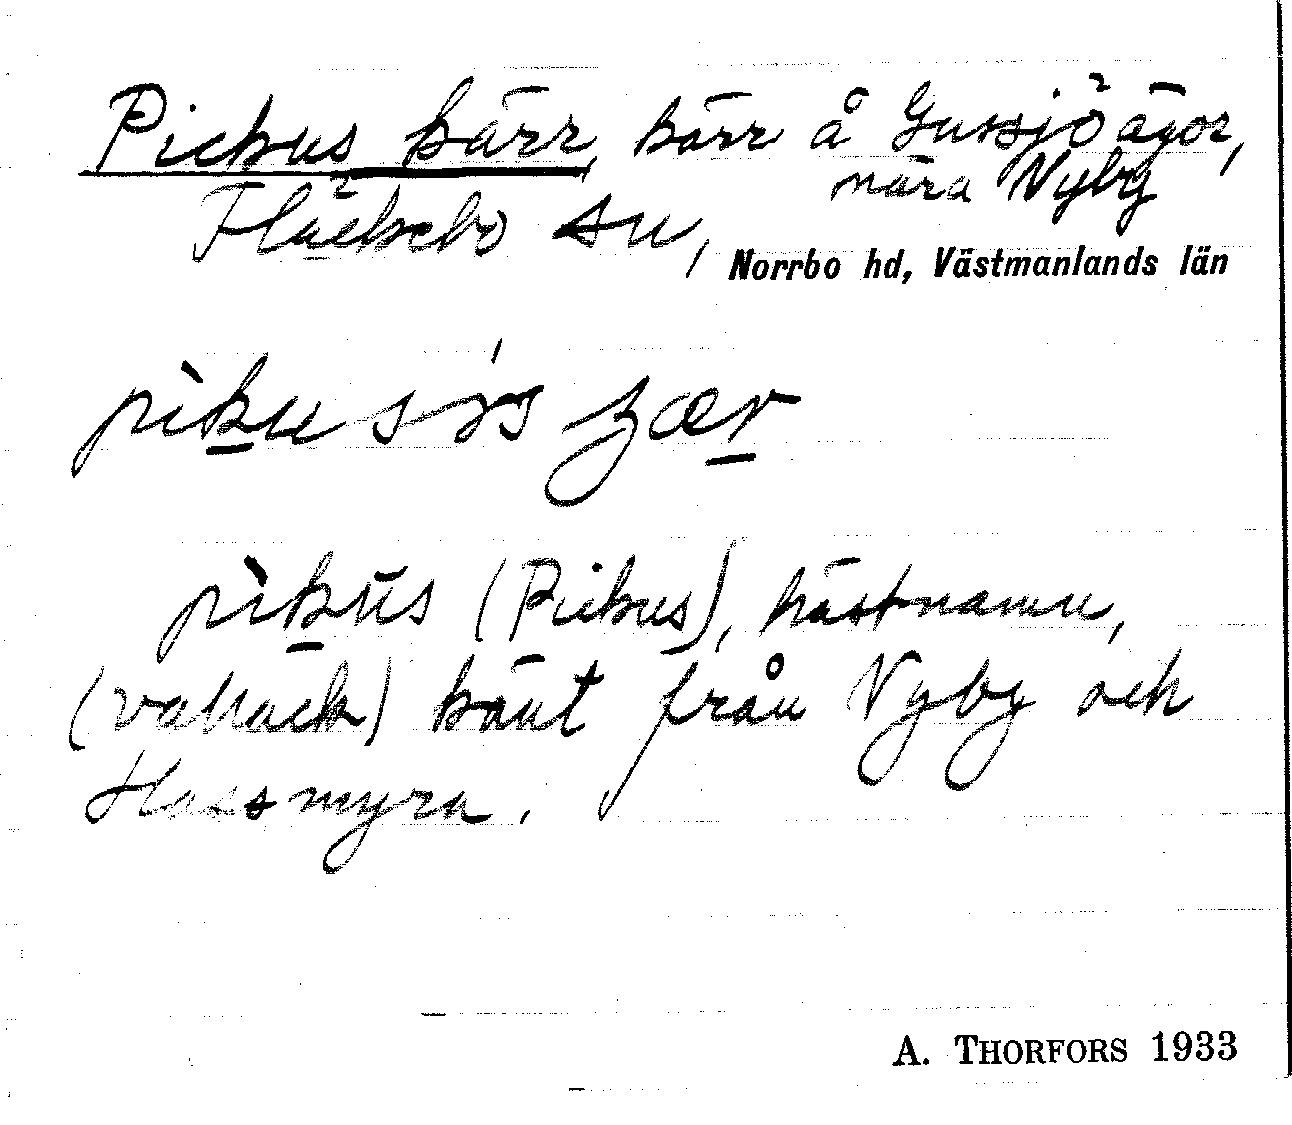 Pickus kärr, kärr å Gussjö ägor,
nära Nyby
Fläckebo sn,
Norrbo hd, Västmanlands län
pìkŭs (Pickus), hästnamn,
(vallack) känt från Nyby och
Hassmyra.
A. THORFORS 1933